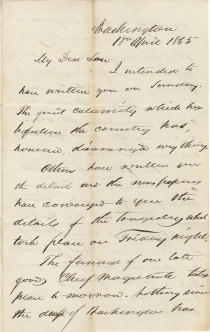 Washington
18th April 1865
My Dear Son
I intended to
have written you on Sunday.
The great calamity which has
befallen the country has,
however, disarranged everything.
Others have written you
the details and the newspapers
have conveyed to you the
details of the tragedy which
took place on Friday night.
The funeral of our late
good Chief Magistrate takes
place to-morrow. Nothing since
the days of Washington has